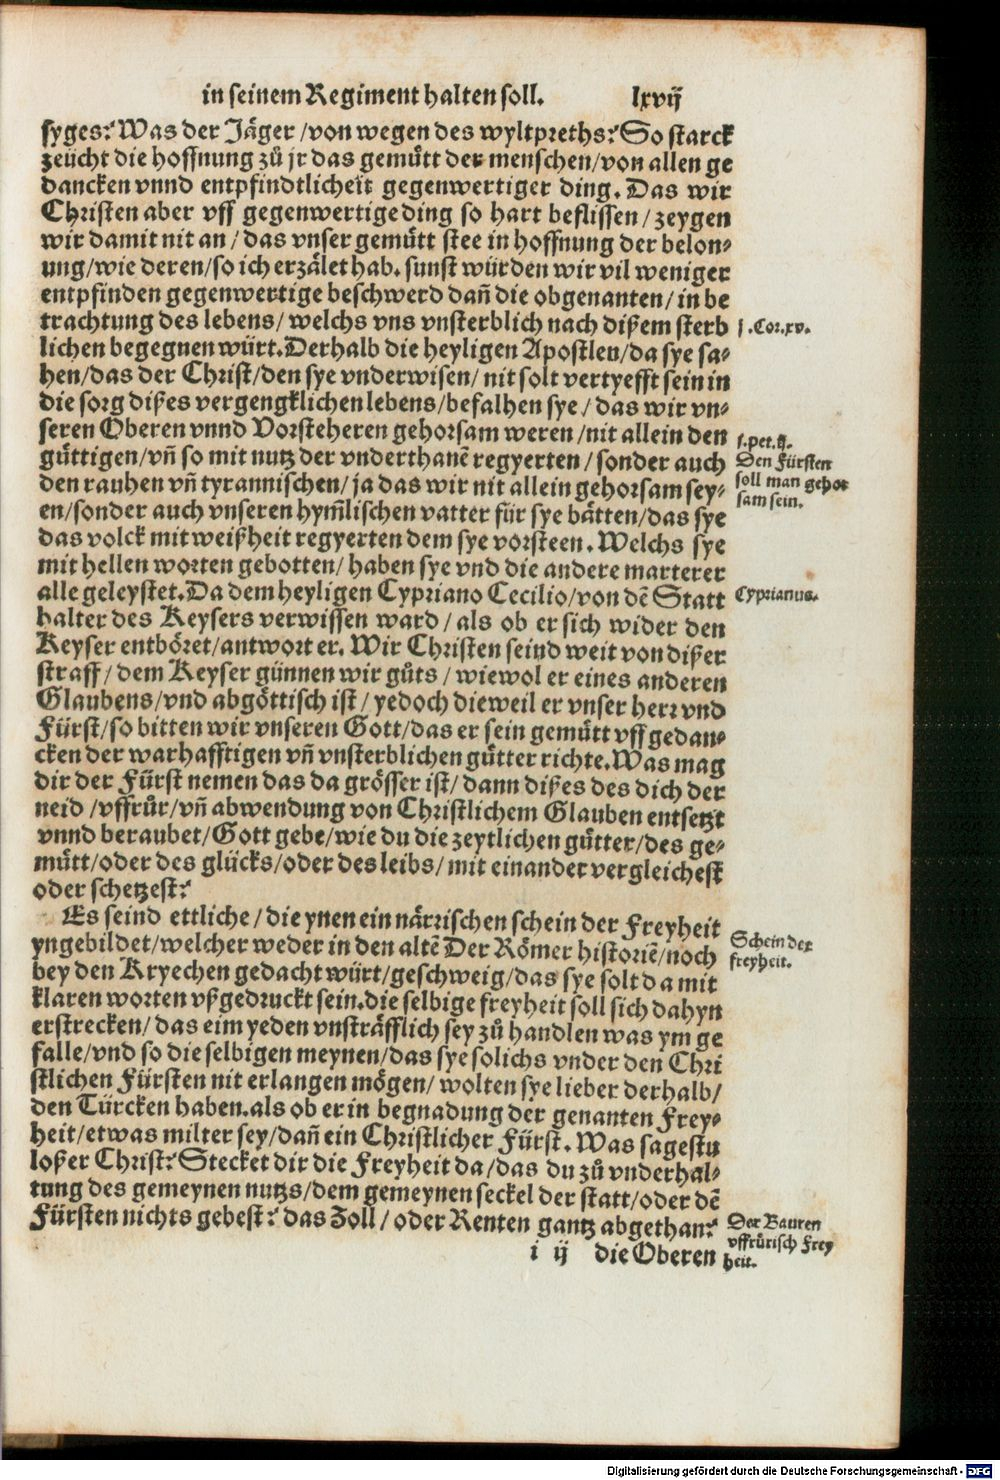 in seinem Regiment halten soll. lxvij
syges? Was der Jäger / von wegen des wyltpreths? So starck
zeücht die hoffnung zů jr das gemůtt der menschen / von allen ge
dancken vnnd entpfindtlicheit gegenwertiger ding. Das wir
Christen aber vff gegenwertige ding so hart beflissen / zeygen
wir damit nit an / das vnser gemůtt stee in hoffnung der belon⸗
ung / wie deren / so ich erzälet hab. sunst würden wir vil weniger
entpfinden gegenwertige beschwerd dañ die obgenanten / in be
trachtung des lebens / welchs vns vnsterblich nach dißem sterb
j. Cor. xv.
lichen begegnen würt. Derhalb die heyligen Apostlen / da sye sa⸗
hen / das der Christ / den sye vnderwisen / nit solt vertyefft sein in
die sorg dißes vergengklichen lebens / befalhen sye / das wir vn⸗
seren Oberen vnnd Vorsteheren gehorsam weren / nit allein den
j. pet. ij.
güttigen / vñ so mit nutz der vnderthanē regyerten / sonder auch
Den Fürsten
den rauhen vñ tyrannischen / ja das wir nit allein gehorsam sey⸗
soll man gehor
en / sonder auch vnseren hym̃lischen vatter für sye bätten / das sye
sam sein.
das volck mit weißheit regyerten dem sye vorsteen. Welchs sye
mit hellen worten gebotten / haben sye vnd die andere marterer
alle geleystet. Da dem heyligen Cypriano Cecilio / von dē Statt
Cyprianus.
halter des Keysers verwissen ward / als ob er sich wider den
Keyser entböret / antwort er. Wir Christen seind weit von dißer
straff / dem Keyser günnen wir gůts / wiewol er eines anderen
Glaubens / vnd abgöttisch ist / yedoch dieweil er vnser herr vnd
Fürst / so bitten wir vnseren Gott / das er sein gemůtt vff gedan⸗
cken der warhafftigen vñ vnsterblichen gütter richte. Was mag
dir der Fürst nemen das da grösser ist / dann dißes des dich der
neid / vffrůr / vñ abwendung von Christlichem Glauben entsetzt
vnnd beraubet / Gott gebe / wie du die zeytlichen gütter / des ge⸗
můtt / oder des glücks / oder des leibs / mit einander vergleichest
oder schetzest?
Es seind ettliche / die ynen ein närrischen schein der Freyheit
Schein der
yngebildet / welcher weder in den altē Der Römer historiē / noch
freyheit.
bey den Kryechen gedacht würt / geschweig / das sye solt da mit
klaren worten vßgedruckt sein. die selbige freyheit soll sich dahyn
erstrecken / das eim yeden vnsträfflich sey zů handlen was ym ge
falle / vnd so die selbigen meynen / das sye solichs vnder den Chri
stlichen Fürsten nit erlangen mögen / wolten sye lieber derhalb /
den Türcken haben. als ob er in begnadung der genanten Frey⸗
heit / etwas milter sey / dañ ein Christlicher Fürst. Was sagestu
loßer Christ? Stecket dir die Freyheit da / das du zů vnderhal⸗
tung des gemeynen nutzs / dem gemeynen seckel der statt / oder dē
Fürsten nichts gebest? das Zoll / oder Renten gantz abgethan?
Der Bauren
vffrůrisch Frey
heit.
i ij die Oberen
Digitalisierung gefördert durch die Deutsche Forschungsgemeinschaft - DFG